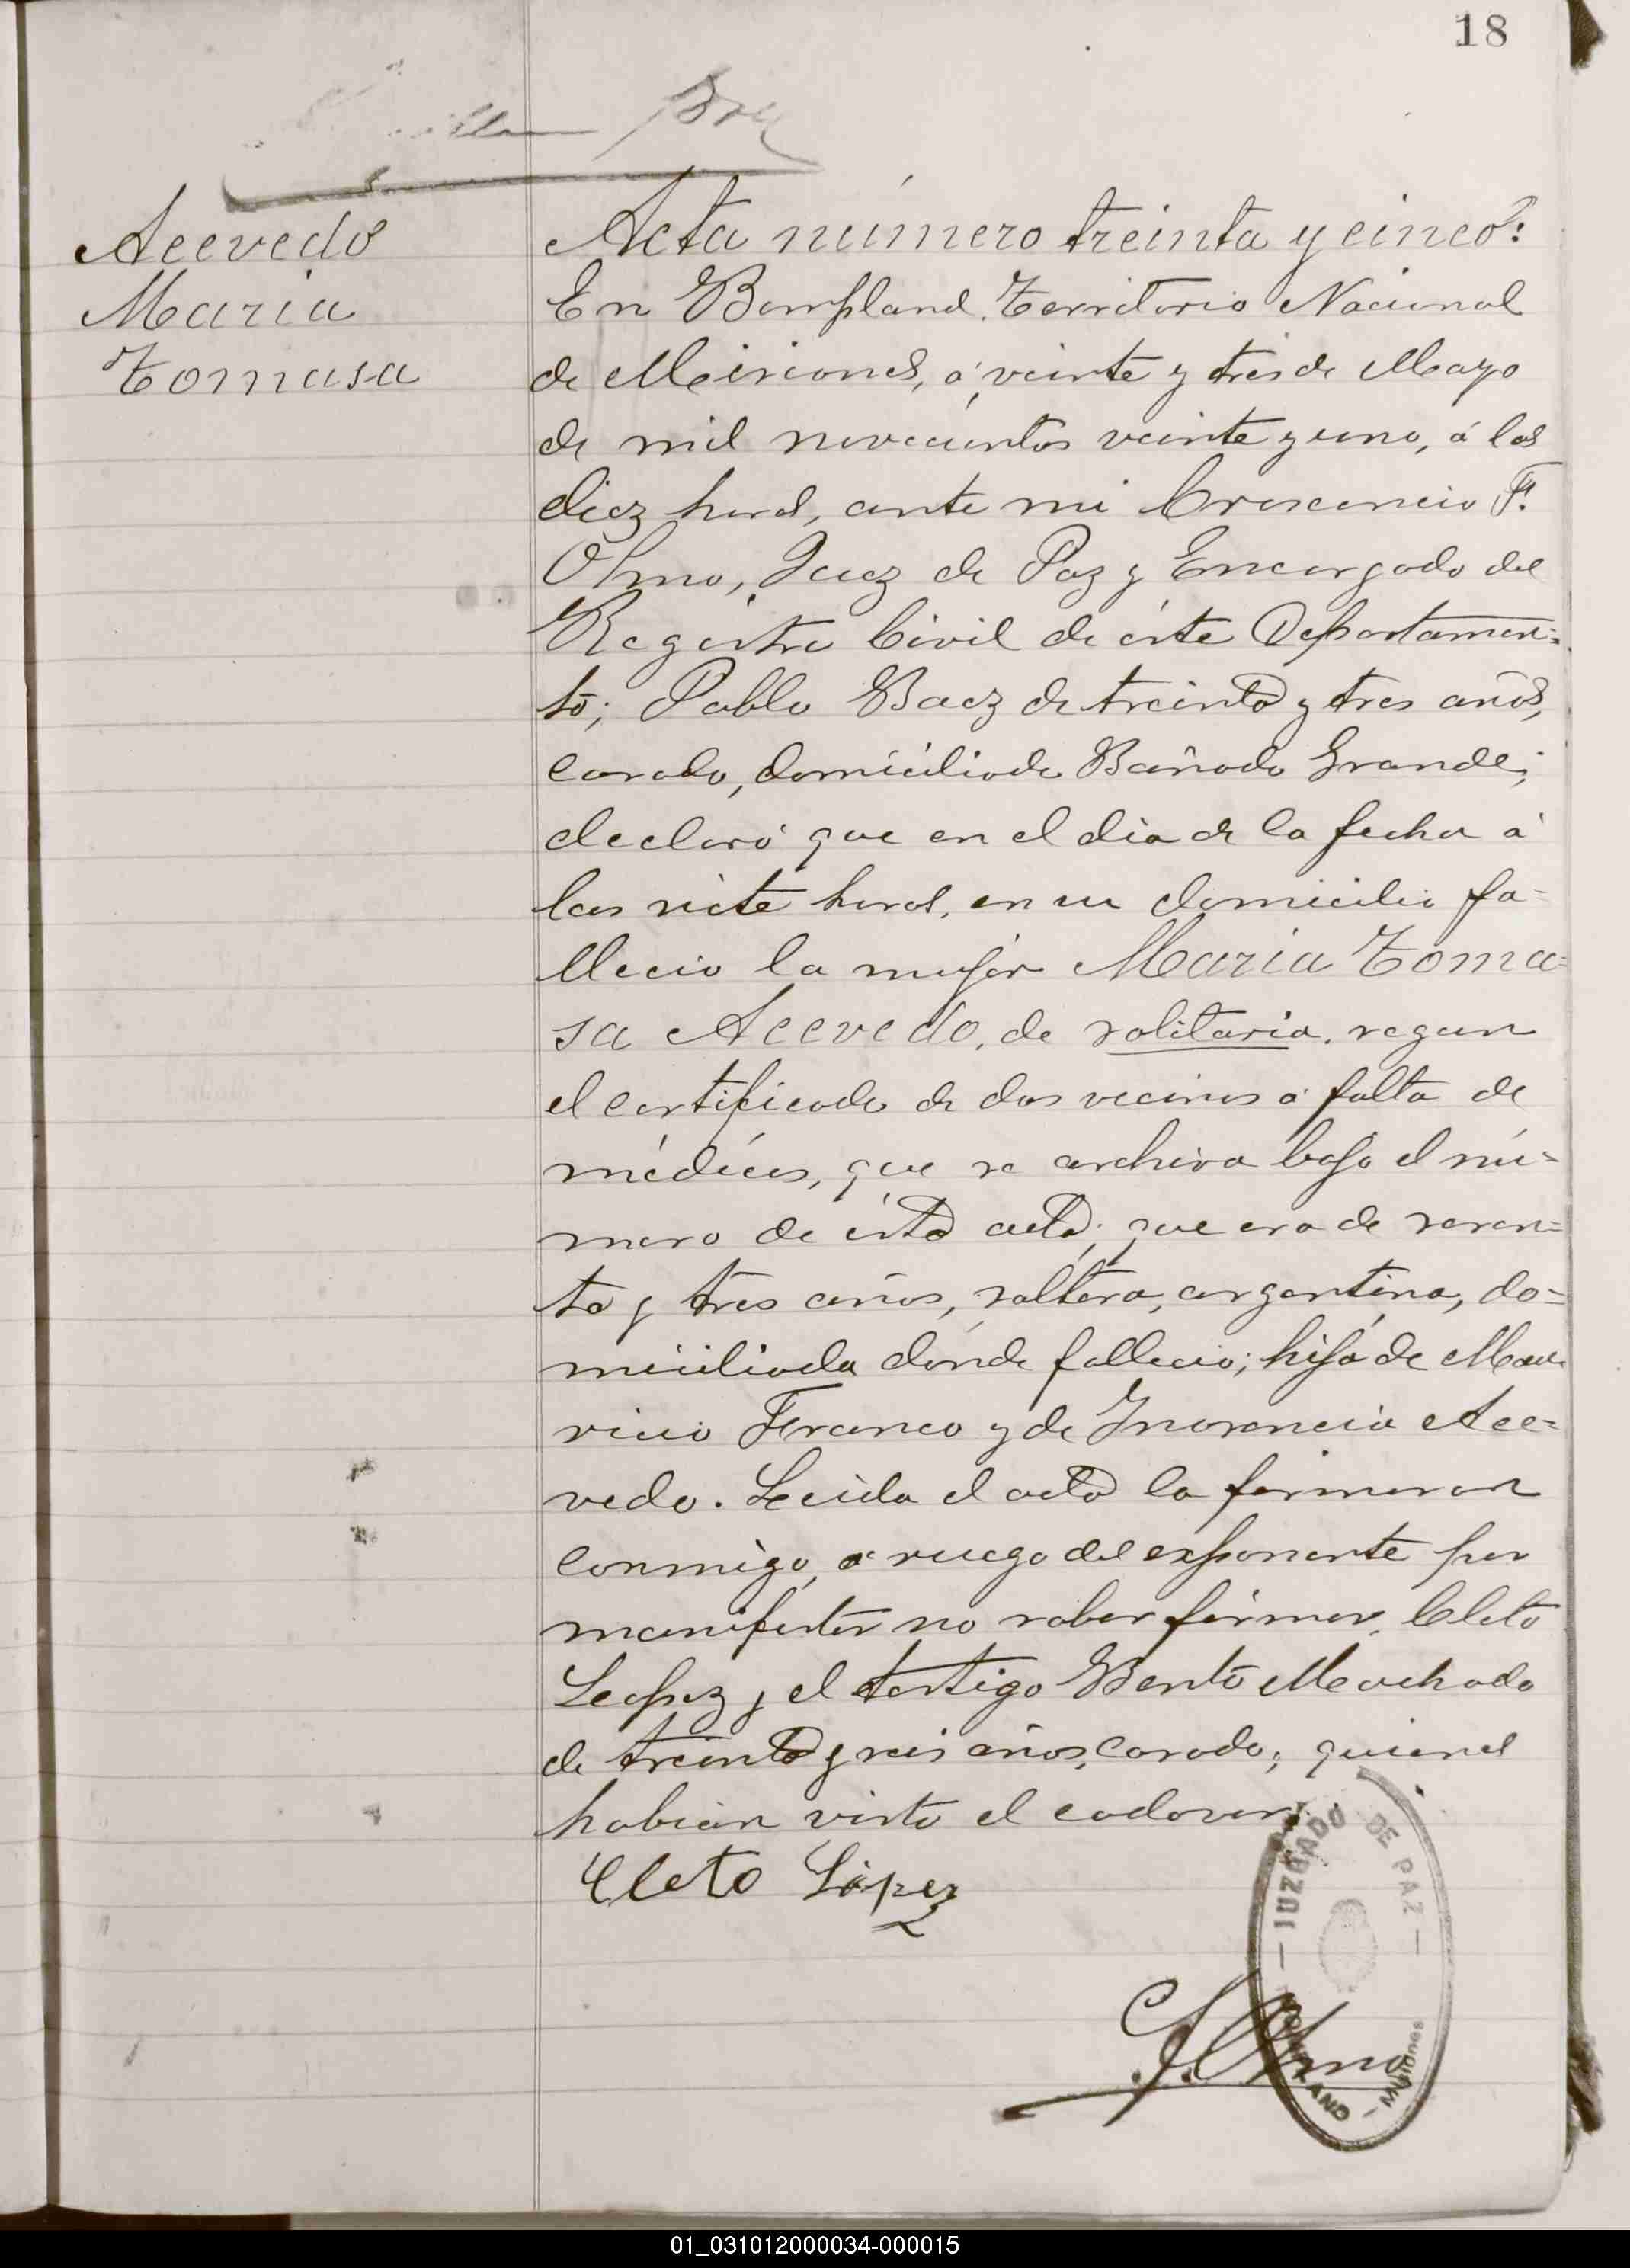 18
Acevedo
Maria
Tomasa
Acta número treinta y cinco:
En Bonpland, Territorio Nacional
de Misiones, á veinte y tres de Mayo
de mil novecientos veinte y uno, á las
diez horas, ante mi Crescencio F.
Olmo, Juez de Paz y Encargado del
Registro Civil de éste Departamen=
to; Pablo Baez de treinta y tres años,
casado, domiciliado Bañado Grande;
declaró que en el dia de la fecha á
las siete horas, en su domicilio fa=
llecio la mujer Maria Toma=
sa Acevedo, de solitaria, segun
el certificado de dos vecinos á falta de
médicos, que se archiva bajo el nú=
mero de ésta acta; que era de
y tres años, soltera, argentina, do=
miciliada donde fallecio; hija de Mau
ricio Franco y de Inosencia Ace=
vedo. Leida el acta la firmaron
conmigo, a ruego del exponente por
manifestar no saber firmar, Cleto
Lopez y el testigo Bento Machado
de treinta y seis años, casado; quienes
habian visto el cadaver.
Cleto López
F. Olmo
— JUZGADO DE PAZ —
BONPLAND - Misiones
01_031012000034-000015